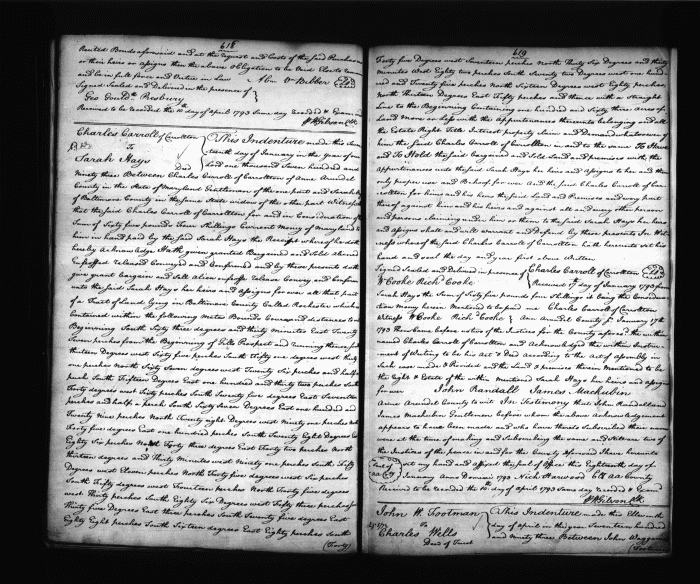 618
recited Bonds aforesaid and at the request and Costs of the said Purchaser
or their heirs or assigns then the above Obligation to be Void Else to remain
and be in full force and Virtue in Law
Signed Sealed and Delivered in the presence of
Received to be recorded the 10th day of April 1793 same day recorded & Examined
Charles Carroll of Carrollton
To
Sarah Hays
Deed
This Indenture made this
day of January in the year of our
Lord one thousand Seven hundred and
Ninety three Between Charles Carroll of Carrollton of Anne Arundel
County in the State of Maryland Gentleman of the one part and Sarah
of Baltimore County in the same State widow of the other part Witnesseth
that the said Charles Carroll of Carrollton for and in Consideration of
Sum of Sixty five pounds four Shillings Current money of Maryland to
him in hand paid by the said Sarah Hays the Receipt whereof he doth
hereby Acknowledge Hath given granted Bargained and Sold aliened
Enfeoffed released Conveyed and Confirmed and by these presents doth
give grant bargain and Sell alien enfeoffe release Convey and Confirm
unto the said Sarah Hays her heirs and assigns for ever all that part
of a Tract of Land lying in Baltimore County Called
Contained within the following metes Bounds Courses and distances to wit
Beginning South Sixty three degrees and thirty minutes East Twenty
Seven perches from the Beginning of Prospect and running thence South
thirteen Degrees west Sixty five perches South Fifty one degrees west thirty
one perches North Sixty Seven degrees west Twenty Six perches and half a
perch South Fifteen Degrees East one hundred and thirty two perches South
Forty degrees west Sixty perches South Seventy five degrees East Seventeen
perches and half a perch South Sixty Seven Degrees East one hundred and
Twenty Nine perches North Twenty eight Degrees west Ninety one perches North
Forty five degrees East one hundred perches South Twenty Eight Degrees East
Eighty Six perches North Forty three degrees East Forty two perches North
thirteen degrees and Thirty Minutes east Ninety one perches South Fifty
Degrees west Eleven perches North Forty five degrees west Six perches
South Fifty degrees west Fourteen perches North Forty five degrees
west Thirty perches South Eighty Six Degrees west Fifty three perches
Thirty five Degrees East three perches South Twenty five degrees East
Eighty Eight perches South Sixteen degrees East Eighty perches South
(Forty)
619
Forty five Degrees west Seventeen perches North Thirty Six Degrees and Thirty
Minutes West Eighty two perches South Seventy two Degrees west one hundred
and Twenty five perches North Sixteen Degrees west Eighty perches
North Thirteen Degrees East Fifty perches and thence with a Straight
Line to the Beginning Containing one hundred and Sixty three acres of
Land more or less with the Appurtenances thereto belonging and all
the Estate Right Title Interest property Claim and Demand whatsoever of
him the said Charles Carroll of Carrollton in and to the same To Have
and To Hold the said bargained and Sold Land and premises with the
Appurtenances unto the said Sarah Hays her heirs and assigns to her and their
only proper use and Behoof for ever And the said Charles Carroll of Car-
rollton for himself and his heirs the said Land and Premises and every part
thereof against himself and his heirs and against all and every other person
and persons claiming under him or them to the said Sarah Hays her heirs
and assigns shall and will warrant and Defend by these presents In Wit-
ness whereof the said Charles Carroll of Carrollton hath hereunto set his
hand and seal the day and year first above Written
Signed Sealed and Delivered in presence of
Cooke Richd Cooke
Charles Carroll of Carrollton
Received 17th day of January 1793 from
Sarah Hays the Sum of Sixty five pounds four Shillings it being the Considera-
tion Money herein Mentioned to be paid me Charles Carroll of Carrollton
Witness Cooke Richd Cooke Ann Arundel County Sc January 17th
1793 Then Came before us two of the Justices for the County aforesaid the within
named Charles Carroll of Carrollton and Acknowledged the within Instru-
ment of Writing to be his Act & Deed according to the Act of assembly in
Such case made & Provided and the Land & premises therein Mentioned to be
the Right & Estate of the within mentioned Sarah Hays her heirs and assigns
for ever John Randall James Mackubin
Anne Arundel County to wit In Testimony that John Randall and
James Mackubin Gentlemen before whom the above Acknowledgement
appears to have been made and who have thereto Subscribed their names
were at the time of making and Subscribing the same and still are two of
the Justices of the peace in and for the County aforesaid I have hereunto
set my hand and affixed the seal of Office this Eighteenth day of
January Anno Domini 1793 Nich Harwood Clk AA County
Received to be recorded the 10th day of April 1793 Same day recorded & Examd
John W. Tootman
To
Charles Wells
Deed of Trust
This Indenture made this Eleventh
day of April in the year Seventeen hundred
and ninety three Between John